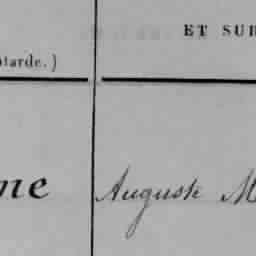 ET SUR
tarde.)
ne Auguste M